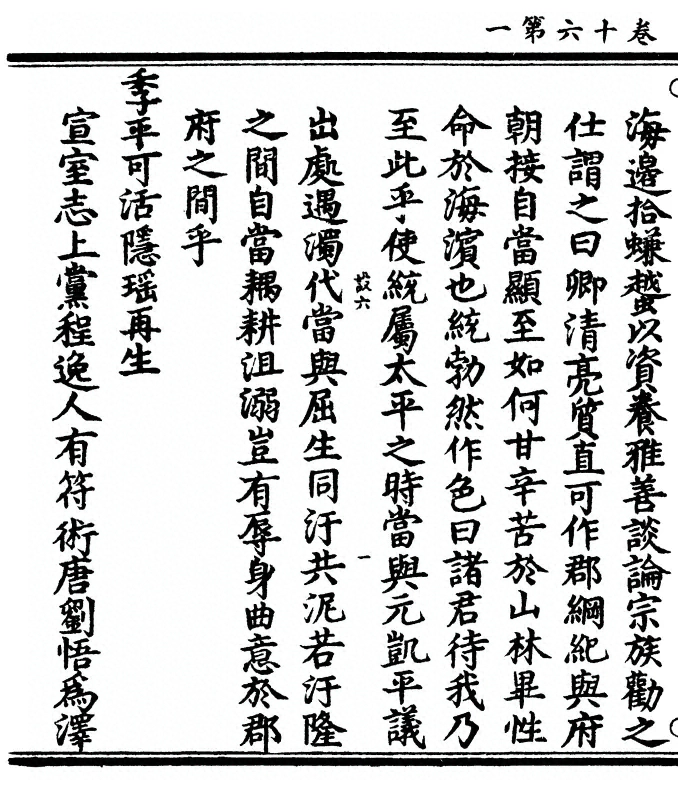 卷十六第一
海邊拾蠊䗋以資養雅善談論宗族勸之
仕謂之曰卿清亮質直可作郡綱紀與府
朝接自當顯至如何甘辛苦於山林畢性
命於海濱也統勃然作色曰諸君待我乃
至此乎使統屬太平之時當與元凱平議
設六
一
出處遇濁代當與屈生同汙共泥若汙隆
之間自當耦耕沮溺豈有辱身曲意於郡
府之間乎
季平可活隱瑶再生
宣室志上黨程逸人有符術唐劉悟為澤